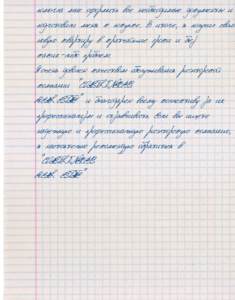 помогла мне оформить все необходимые документы и
подготовила меня к покупке. В итоге, я купил свою
новую квартиру в кратчайшие сроки и без
каких-либо проблем.
Я очень доволен качеством обслуживания риэлторской
компании "
и благодарен всему коллективу за их
профессионализм и отзывчивость. Если вы ищете
надежную и профессиональную риэлторскую компанию,
я настоятельно рекомендую обратиться в